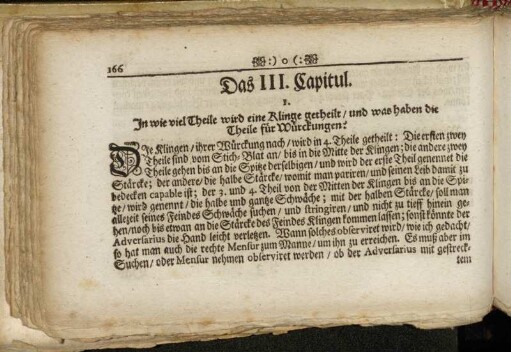 166
:) o (:
Das III. Capitul.
1.
In wie viel Theile wird eine Klinge getheilt / und was haben die
Theile für Würckungen?
DJe Klingen / ihrer Würckung nach / wird in 4. Theile getheilt: Die ersten zwey
Theile sind vom Stich-Blat an / bis in die Mitte der Klingen; die andere zwey
Theile gehen bis an die Spitze derselbigen / und wird der erste Theil genennet die
Stärcke; der andere / die halbe Stärcke / womit man pariren / und seinen Leib damit zu
bedecken capable ist; der 3. und 4. Theil von der Mitten der Klingen bis an die Spi-
tze / wird genennt / die halbe und gantze Schwäche; mit der halben Stärcke / soll man
allezeit seines Feindes Schwäche suchen / und stringiren / und nicht zu tieff hinein ge-
hen / noch bis etwan an die Stärcke des Feindes Klingen kommen lassen; sonst könnte der
Adversarius die Hand leicht verletzen. Wann solches observiret wird / wie ich gedacht /
so hat man auch die rechte Mensur zum Manne / um ihn zu erreichen. Es muß aber im
Suchen / oder Mensur nehmen observiret werden / ob der Adversarius mit gestreck-
tem